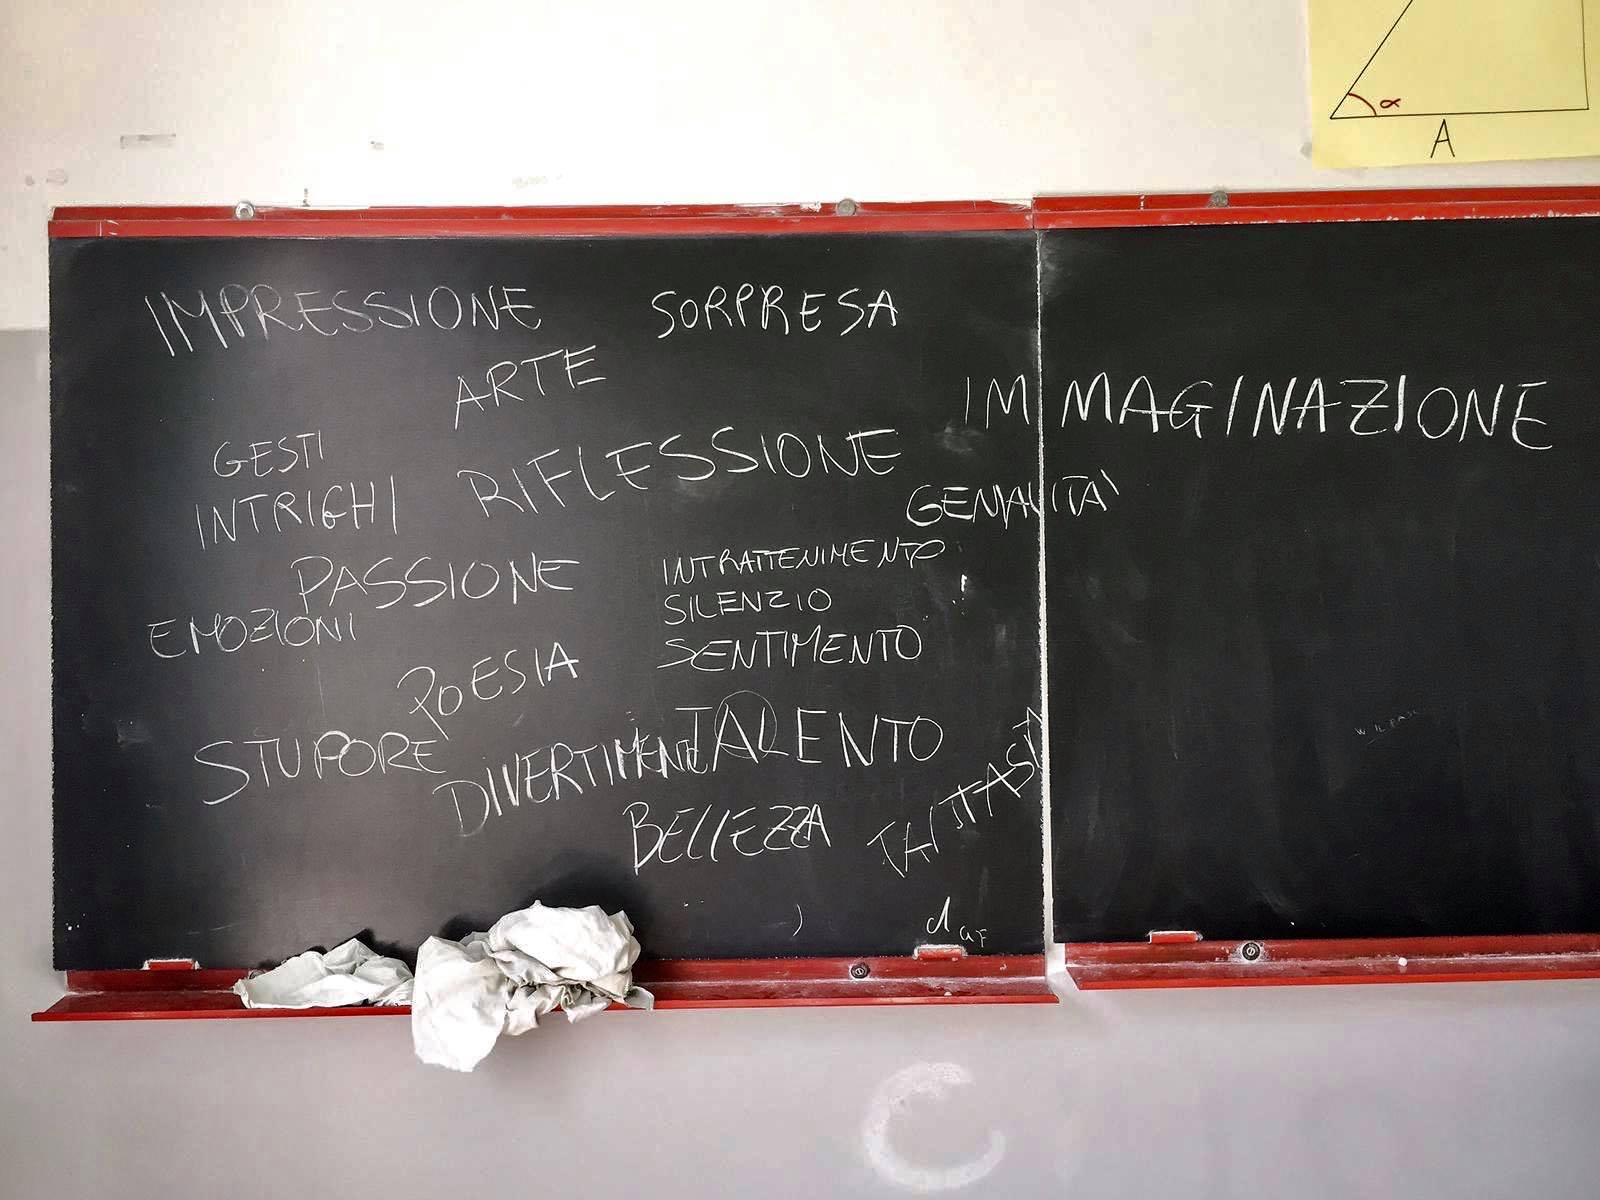 α
A
IMPRESSIONE
SORPRESA
ARTE
IMMAGINAZIONE
GESTI
RIFLESSIONE
INTRIGHI
GENIALITÀ
PASSIONE
INTRATTENIMENTO
SILENZIO
EMOZIONI
SENTIMENTO
POESIA
STUPORE
TALENTO
DIVERTIMENTO
BELLEZZA